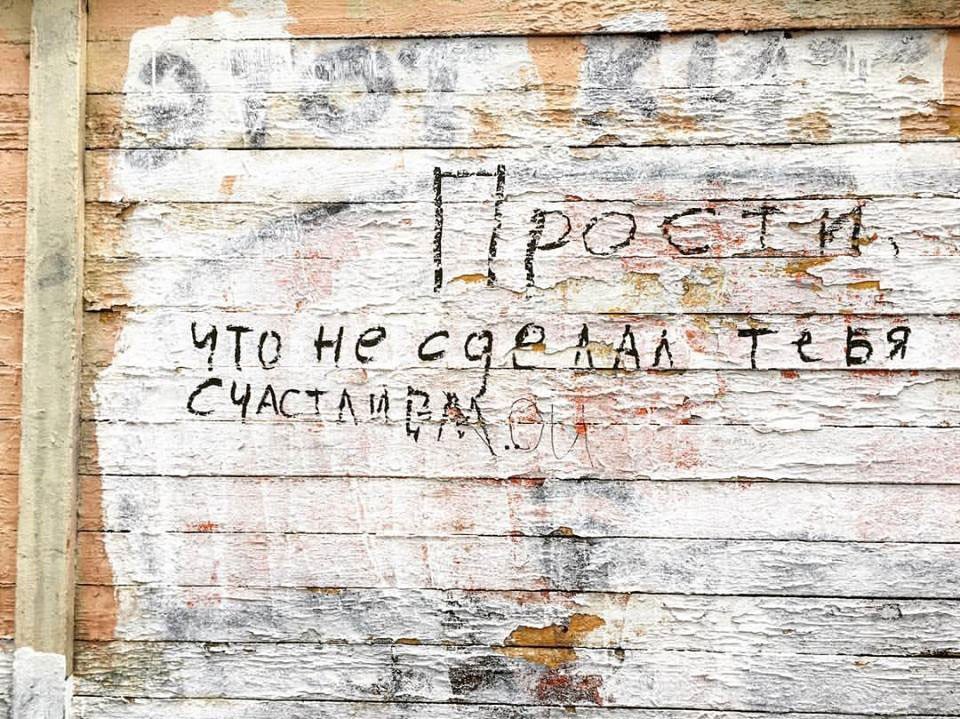 ЭТОТ КИТ
Прости,
что не сделал тебя
счастливой